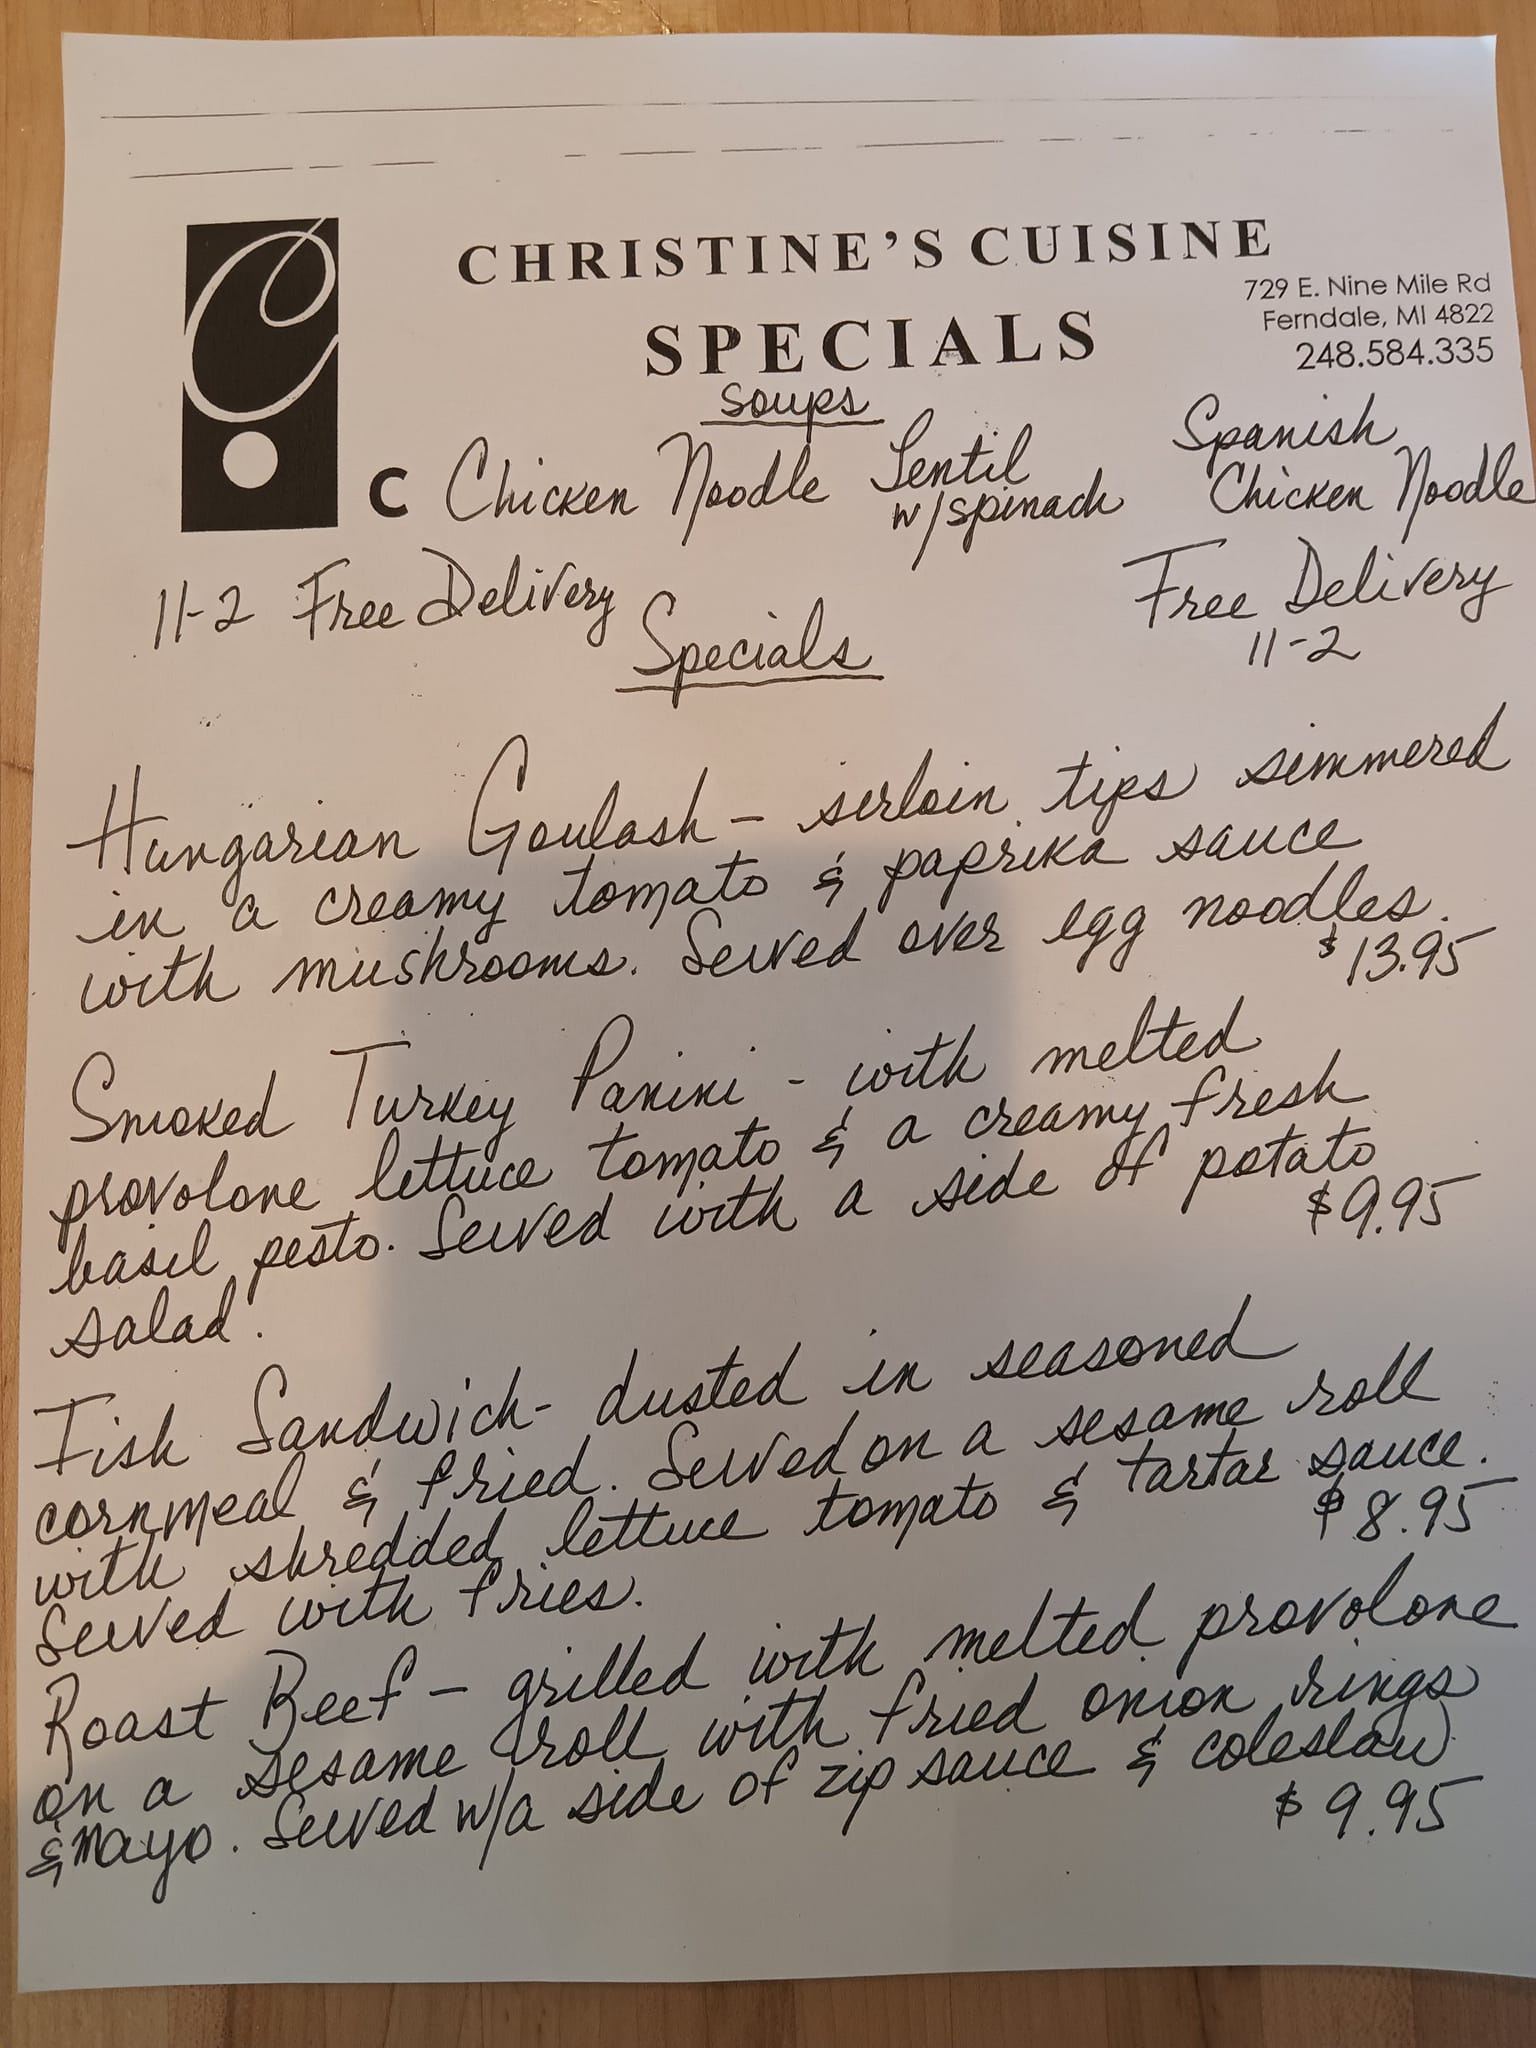 CHRISTINE'S CUISINE
729 E. Nine Mile Rd
Ferndale, MI 4822
248.584.335
SPECIALS
Soups
C Chicken Noodle Lentil w/spinach Spanish Chicken Noodle
11-2 Free Delivery
Free Delivery
11-2
Specials
Hungarian Goulash - serloin tips simmered
in a creamy tomato & paprika sauce
with mushrooms. Served over egg noodles.
$13.95
Smoked Turkey Panini - with melted
provolone lettuce tomato & a creamy fresh
basil pesto. Served with a side of potato
$9.95
salad.
Fish Sandwich - dusted in seasoned
cornmeal & fried. Served on a sesame roll
with shredded lettuce tomato & tartar sauce.
$8.95
Served with fries.
Roast Beef - grilled with melted provolone
on a sesame roll with fried onion rings
& mayo. Served w/a side of zip sauce & coleslaw
$9.95